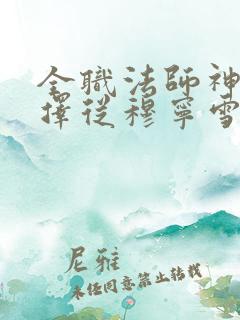 全職法師神
擇從穆寧雪
尼雅
未经同意禁止转载